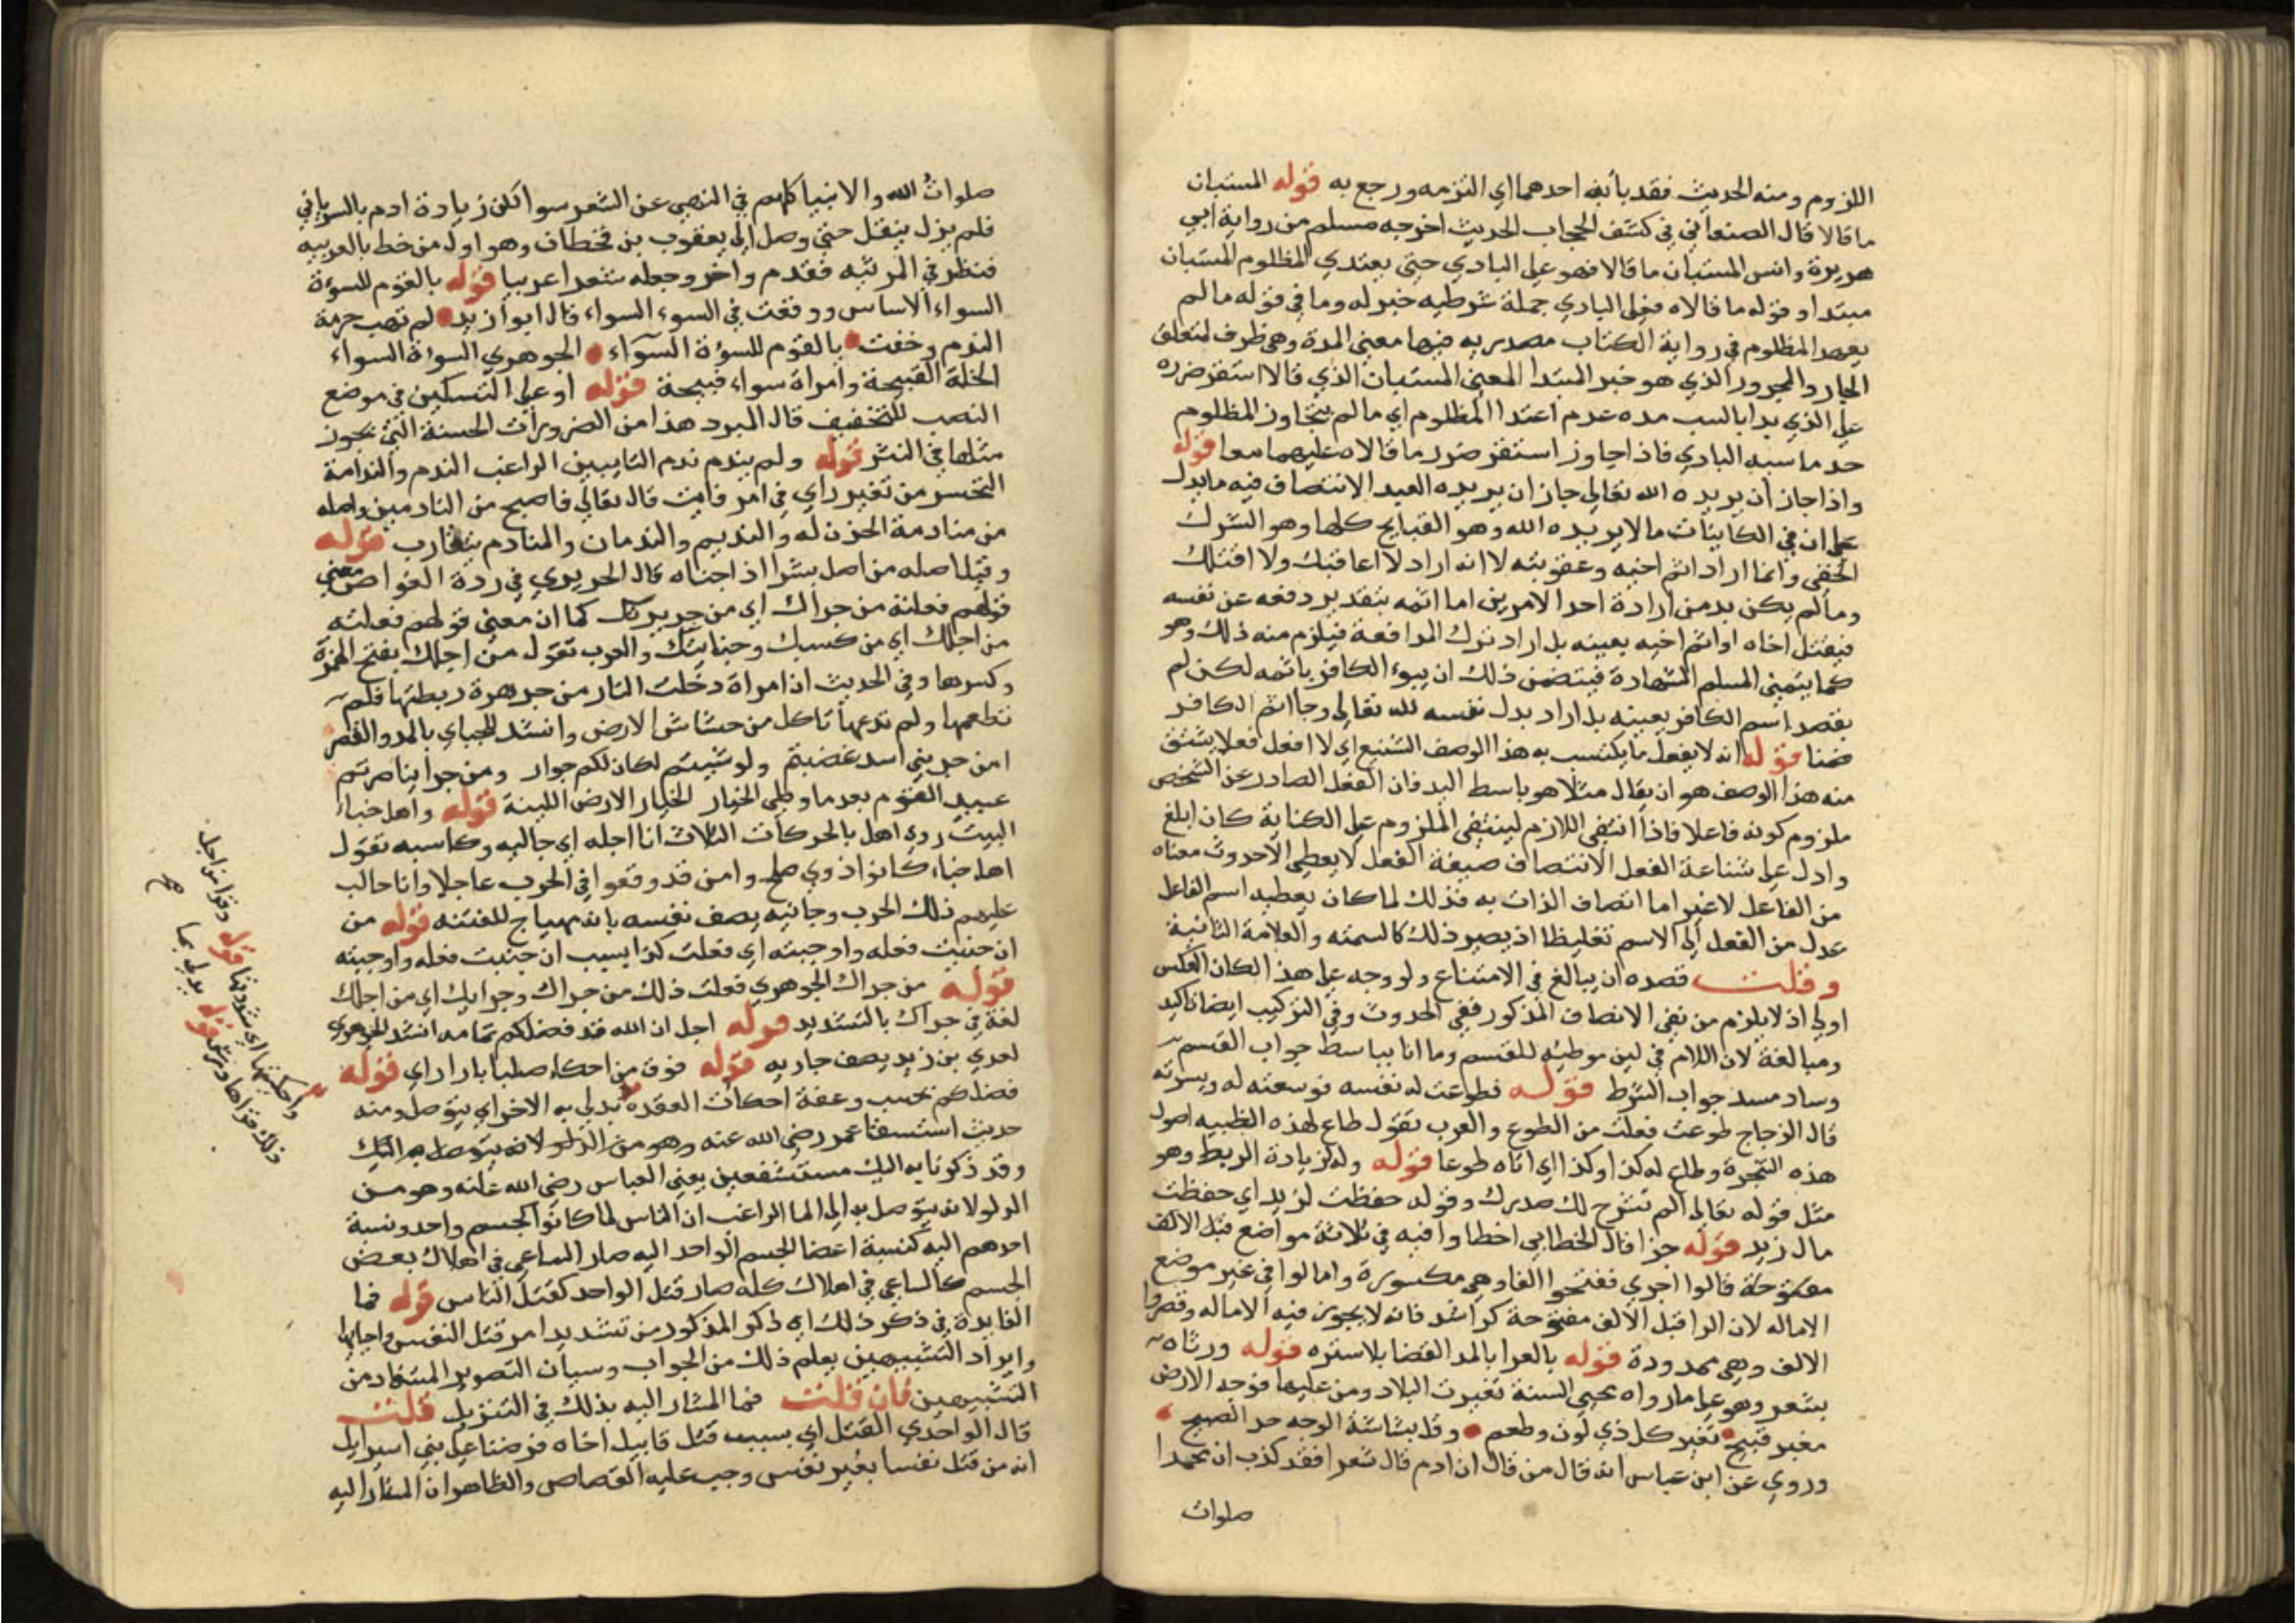 اللزوم ومنه الحديث فقد بأبه احدهما اي التزمه ورجع به قوله المستبان
ما قالا قال الصنعاني في كشف الحجاب الحديث اخرجه مسلم من رواية ابي
هريرة وانس المستبان ما قالا فهو على البادي حتى يعتدي المظلوم المستبان
مبتدا وقوله ما قالاه فعلى البادي جملة شرطيه خبر له وما في قوله ما لم
يعتد المظلوم في رواية الكتاب مصدريه فيها معنى المدة وهي ظرف لمتعلق
الجار والمجرور الذي هو خبر المبتدا المعنى المستبان الذي قالا استقر ضرره
على الذي بدا بالسب مده عدم اعتدا المظلوم اي ما لم يتجاوز المظلوم
حد ما سبه البادي فاذا جاوز استقر ضرر ما قالاه عليهما معا قوله
واذا جاز ان يريده الله تعالى جاز ان يريده العبد الانتصاف فيه ما يدل
على ان في الكاينات ما لا يريده الله وهو القبايح كلها وهو الشرك
الخفى وانما اراد اثم اخيه وعقوبته لا انه اراد لا اعاقبك ولا اقتلك
وما لم يكن بد من ارادة احد الامرين اما اثمه بتقدير دفعه عن نفسه
فيقتل اخاه او اثم اخيه بعينه بل اراد ترك المدافعة فيلزم منه ذلك وهو
كما يتمنى المسلم الشهادة فيتضمن ذلك ان يبوء الكافر باثمه لكن لم
يقصد اسم الكافر بعينه بل اراد بدل نفسه لله تعالى وجا اثم الكافر
ضمنا قوله انه لا يفعل ما يكتسب به هذا الوصف الشنيع اي لا افعل فعلا يشتق
منه هذا الوصف هو ان يقال مثلا هو باسط اليد فان الفعل الصادر عن الشخص
ملزوم كونه فاعلا فاذا انتفى اللازم لينتفي الملزوم على الكناية كان ابلغ
وادل على شناعة الفعل الانتصاف صيغة الفعل لا يعطي الاحدوث معناه
من الفاعل لا غير اما اتصاف الذات به فذلك لما كان يعطيه اسم الفاعل
عدل من الفعل الى الاسم تغليظا اذ يصير ذلك كالسمته والعلامة الثانية
وقلت قصده ان يبالغ في الامتناع ولو وجه على هذا لكان العكس
اولى اذ لا يلزم من نفى الاتصاف المذكور نفي الحدوث وفي التركيب ايضا تاكيد
ومبالغة لان اللام في لين موطيه للقسم وما انا بباسط جواب القسم
وساد مسد جواب الشرط قوله فطوعت له نفسه فوسعته له ويسرته
قال الزجاج طوعت فعلت من الطوع والعرب تقول طاع لهذه الظبيه اصول
هذه الشجرة وطاع له كذا وكذا اي اتاه طوعا قوله وله لزيادة الربط وهو
مثل قوله تعالى الم نشرح لك صدرك وقوله حفظت لزيد اي حفظت
مال زيد قوله حزا قال الخطابي اخطاوا فيه في ثلاثة مواضع قبل الالف
مفتوحة قالوا اجري ففتحوا الفا وهي مكسورة وامالوا في غير موضع
الاماله لان الرا قبل الالف مفتوحة كراشد فانه لا يجوز فيه الاماله وقصروا
الالف وهي ممدودة قوله بالعرا بالمد الفضا بلا ستره قوله ورثاه
بشعر وهو على ما رواه محيي السنة تغيرت البلاد ومن عليها فوجه الارض
مغبر قبيح تغير كل ذي لون وطعم وقل بشاشة الوجه حد الصبيح
وروي عن ابن عباس انه قال من قال ان ادم قال شعرا فقد كذب ان محمدا
صلوات
صلوات الله والانبيا كلهم في النهي عن الشعر سوا لكن زيادة ادم بالسرياني
فلم يزل ينقل حتى وصل الى يعقوب بن قحطان وهو اول من خط بالعربيه
فنظر في المرثيه فقدم واخر وجعله شعرا عربيا قوله بالقوم للسوءة
السواء الاساس ووقعت في السوء السواء قال ابو زبيد لم تهب حرمة
الندم وخفت بالقوم للسوءة السواء الجوهري السوءة السواء
الخلة القبيحة وامراة سواء قبيحة قوله او على التسكين في موضع
النصب للتخفيف قال المبرد هذا من الضرورات الحسنة التي يجوز
مثلها في النثر قوله ولم يندم ندم التايبين الراغب الندم والندامة
التحسر من تغير راي في امر فايت قال تعالى فاصبح من النادمين واصله
من منادمة الحزن له والنديم والندمان والمنادم يتقارب قوله
وقيل اصله من اصل بشرا اذا جناه قال الحريري في ردة الغواص معنى
قولهم فعلته من جراك اي من جريرتك كما ان معنى قولهم فعلته
من اجلك اي من كسبك وجنايتك والعرب تقول من اجلك بفتح الهمزة
وكسرها وفي الحديث ان امراة دخلت النار من جر هرة ربطتها فلم
تطعمها ولم تدعها تاكل من حشاش الارض وانشد للجباي بالمد والقصر
امن جر بني اسد غضبتم ولو شيتم لكان لكم جوار ومن جرا بنا صرتم
عبيد القوم بعد ما وطي الخبار الخبار الارض اللينة قوله واهل خباء
البيت روي اهل بالحركات الثلاث انا اجله اي جالبه وكاسبه تقول
اهل خباء كانوا ذوي صلح وامن قد وقعوا في الحرب عاجلا وانا جالب
عليهم ذلك الحرب وجانيه يصف نفسه بانه مهياج للفتنه قوله من
ان جنيت فعله واوجبته اي فعلت كذا بسبب ان جنيت فعله واوجبته
قوله من جراك الجوهري فعلت ذلك من جراك وجرايك اي من اجلك
لغة في جراك بالتشديد قوله اجل ان الله قد فضلكم تمامه انشد الجوهري
لعدي بن زيد يصف جاريه قوله فوق من احكاء صلبا بازار اي قوله
فضلكم بحسب وعفة احكات العقدة يدلي به الاخر اي يتوصل ومنه
حديث استسقا عمر رضي الله عنه وهو من الدلو لانه يتوصل به اليك
وقد ذكونا به اليك مستشفعين يعني العباس رضي الله عنه وهو من
الدلو لانه يتوصل به الى الما الراغب ان الناس لما كانوا كجسم واحد ونسبة
احدهم اليه كنسبة اعضا الجسم الواحد اليه صار الساعي في اهلاك بعض
الجسم كالساعي في اهلاك كله صار قتل الواحد كقتل الناس قوله فما
الفايدة في ذكر ذلك اي ذكر المذكور من تشديد امر قتل النفس واحيائها
وايراد التشبيهين يعلم ذلك من الجواب وسيان التصوير المستفاد من
التشبيهين فان قلت فما المشار اليه بذلك في التنزيل قلت
قال الواحدي القتل اي بسبب قتل قابيل اخاه فرضنا على بني اسرايل
انه من قتل نفسا بغير نفس وجب عليه القصاص والظاهر ان المشار اليه